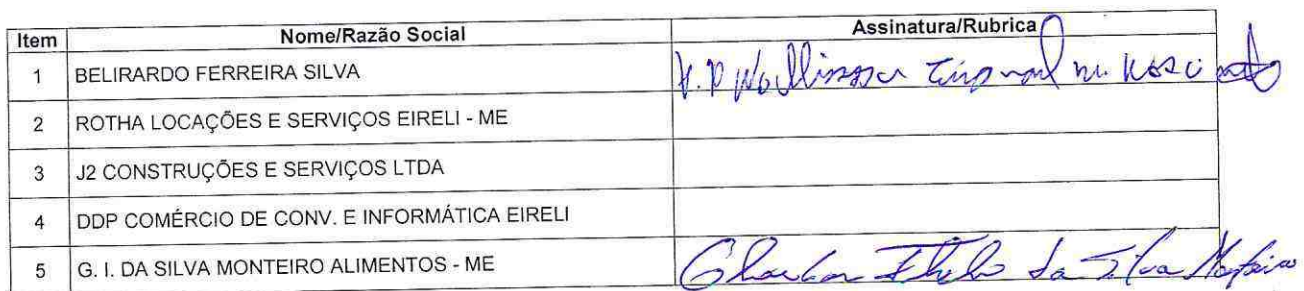 Item Nome/Razão Social Assinatura/Rubrica
1 BELIRARDO FERREIRA SILVA
2 ROTHA LOCAÇÕES E SERVIÇOS EIRELI - ME
3 J2 CONSTRUÇÕES E SERVIÇOS LTDA
4 DDP COMÉRCIO DE CONV. E INFORMÁTICA EIRELI
5 G. I. DA SILVA MONTEIRO ALIMENTOS - ME da Silva Monteiro